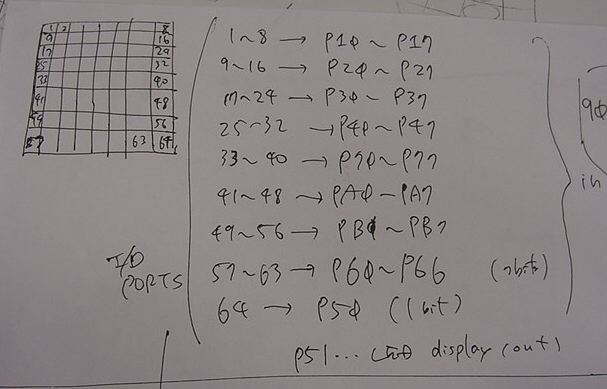 1 2 8
9 16
17 24
25 32
33 40
41 48
49 56
57 63 64
I/O
PORTS
1~8 → P1φ~P17
9~16 → P2φ~P27
17~24 → P3φ~P37
25~32 → P4φ~P47
33~40 → P7φ~P77
41~48 → PAφ~PA7
49~56 → PBφ~PB7
57~63 → P6φ~P66 (7bits)
64 → P5φ (1bit)
P51... display (out)
9φ
in